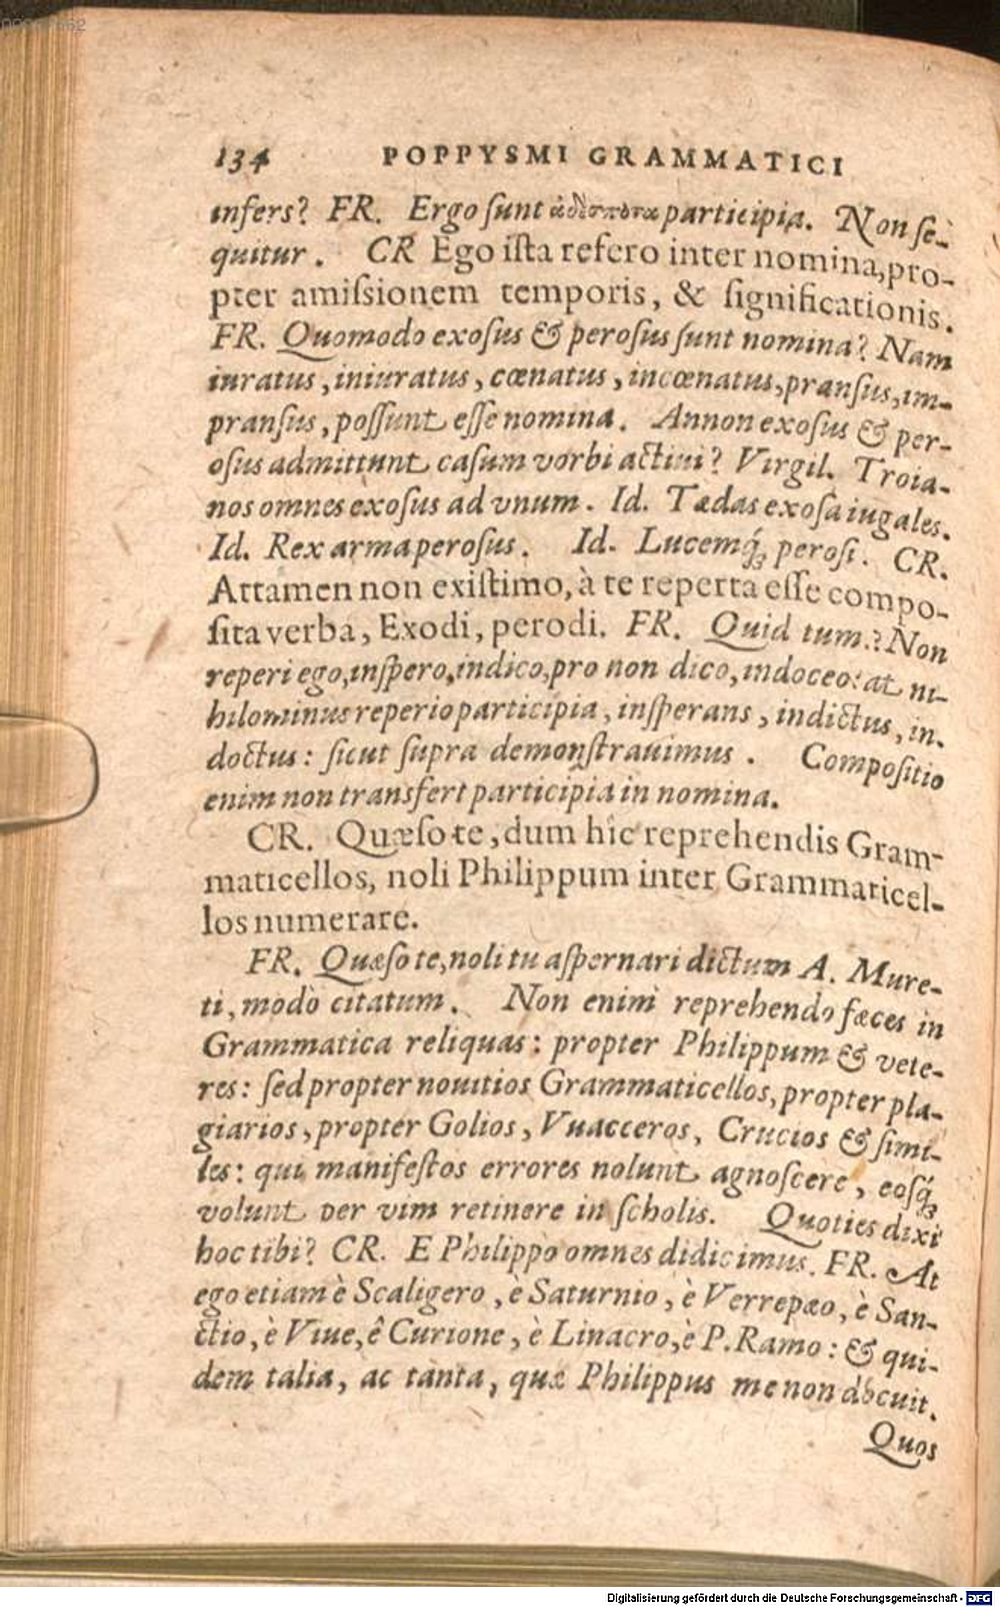 134 POPPYSMI GRAMMATICI
infers? FR. Ergo ſunt participia. Non ſe-
quitur. CR Ego iſta refero inter nomina, pro-
pter amiſsionem temporis, & ſignificationis.
FR. Quomodo exoſus & peroſus ſunt nomina? Nam
iuratus, iniuratus, cœnatus, incœnatus, pranſus, im-
pranſus, poſſunt eſſe nomina. Annon exoſus & per-
oſus admittunt caſum vorbi actiui? Virgil. Troia-
nos omnes exoſus ad vnum. Id. Tædas exoſa iugales.
Id. Rex arma peroſus. Id. Lucemq́ꝫ peroſi. CR.
Attamen non exiſtimo, à te reperta eſſe compo-
ſita verba, Exodi, perodi. FR. Quid tum? Non
reperi ego, inſpero, indico, pro non dico, indoceo: at ni-
hilominus reperio participia, inſperans, indictus, in-
doctus: ſicut ſupra demonſtrauimus. Compoſitio
enim non transfert participia in nomina.
CR. Quæſo te, dum hic reprehendis Gram-
maticellos, noli Philippum inter Grammaticel-
los numerare.
FR. Quæſo te, noli tu aſpernari dictum A. Mure-
ti, modò citatum. Non enim reprehendo fæces in
Grammatica reliquas: propter Philippum & vete-
res: ſed propter nouitios Grammaticellos, propter pla-
giarios, propter Golios, Vuacceros, Crucios & ſimi-
les: qui manifeſtos errores nolunt agnoſcere, eoſq́ꝫ
volunt per vim retinere in ſcholis. Quoties dixi
hoc tibi? CR. E Philippo omnes didicimus. FR. At
ego etiam è Scaligero, è Saturnio, è Verrepæo, è San-
ctio, è Viue, ê Curione, è Linacro, è P. Ramo: & qui-
dem talia, ac tanta, quæ Philippus me non docuit.
Quos
Digitalisierung gefördert durch die Deutsche Forschungsgemeinschaft - DFG